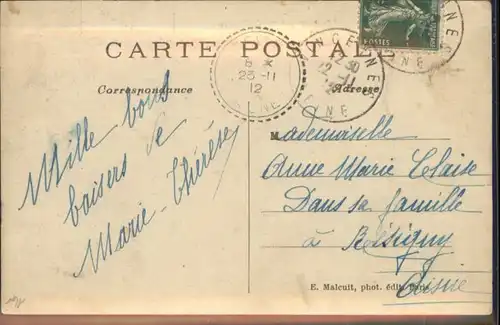 CARTE POSTALE
Correspondance
Adresse
POSTES
23-11
12
VINCENNES
12 30
12
NE
Mille bons
baisers de
Marie-Thérèse
Mademoiselle
Anne Marie Claise
Dans sa famille
à
Aisne
E. Malcuit, phot. édit. Paris